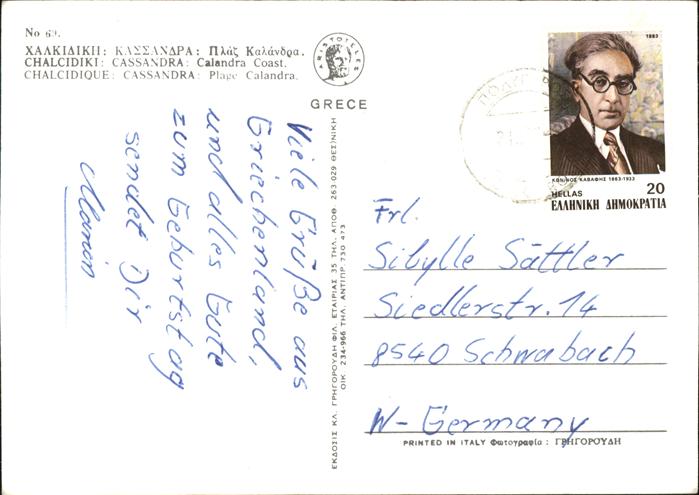 No 69.
ΧΑΛΚΙΔΙΚΗ: ΚΑΣΣΑΝΔΡΑ: Πλάζ Καλάνδρα.
CHALCIDIKI: CASSANDRA: Calandra Coast.
CHALCIDIQUE: CASSANDRA: Plage Calandra.
ARISTOTELES
GREECE
Viele Grüße aus
Griechenland,
und alles Gute
zum Geburtstag
sendet Dir
Manion
ΕΚΔΟΣΙΣ ΚΛ. ΓΡΗΓΟΡΟΥΔΗ ΦΙΛ. ΕΤΑΙΡΙΑΣ 35 ΤΗΛ. ΑΠΟΘ 263-029 ΘΕΣ)ΝΙΚΗ
ΟΙΚ. 234-966 ΤΗΛ. ΑΝΤΙΠΡ. 730 473
1983
ΚΩΝ)ΝΟΣ ΚΑΒΑΦΗΣ 1863-1933
HELLAS 20
ΕΛΛΗΝΙΚΗ ΔΗΜΟΚΡΑΤΙΑ
Frl.
Sibylle Sättler
Siedlerstr. 14
8540 Schwabach
W-Germany
PRINTED IN ITALY Φωτογραφία : ΓΡΗΓΟΡΟΥΔΗ